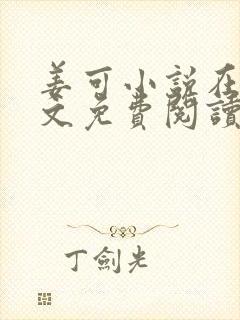 姜可小说在
文免費閱讀
丁劍光